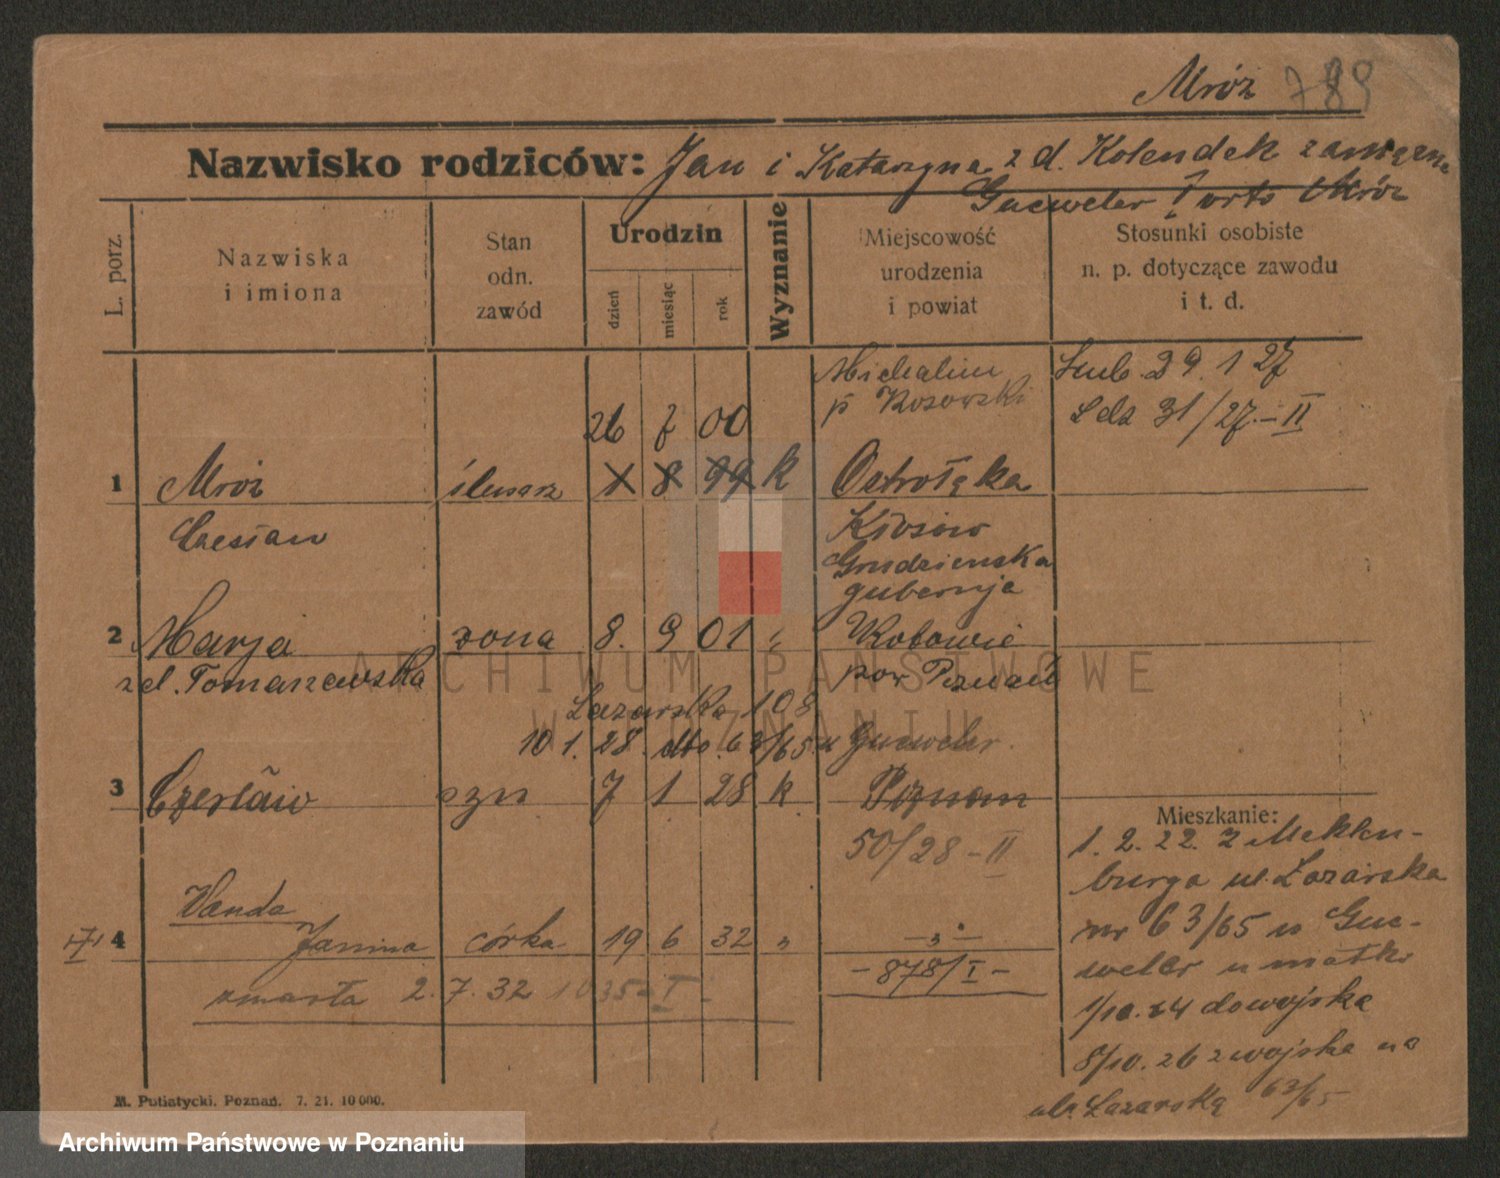 Mróz 789
Nazwisko rodziców: Jan i Katarzyna z d. Kolendek zamężna
Guewelor 1 voto Mróz
L. porz.
Nazwiska
i imiona
Stan
odn.
zawód
Urodzin
dzień
miesiąc
rok
Wyznanie
Miejscowość
urodzenia
i powiat
Stosunki osobiste
n. p. dotyczące zawodu
i t. d.
Michalin
p Kosowski
Ślub. 29. 1 27
Ldz 31/27.–II
26 7 00
1 Mróz ślusarz 1 8 99 k Ostrołęka
Czesław
Kłosów
Grudzienska
gubernja
2 Marja żona 8. 9 01 " Kobowie
z d. Tomaszewska
pow Poznań
Łazarska 108
10 1. 28. dto. 63/65 u Guewelor.
3 Czesław syn 7 1 28 k Poznań
50/28 – II
Wanda
4 Janina córka 19 6 32 " – " –
– 878/I –
zmarła 2. 7. 32 1035 – I –
Mieszkanie:
1. 2. 22. z Meklen-
burga ul. Łazarska
nr 63/65 u Gue-
welor u matki
1/10. 24 do wojska
8/10. 26 z wojska na
ul. Łazarską 63/65
M. Putiatycki. Poznań. 7. 21. 10 000.
ARCHIWUM PAŃSTWOWE
W POZNANIU
Archiwum Państwowe w Poznaniu